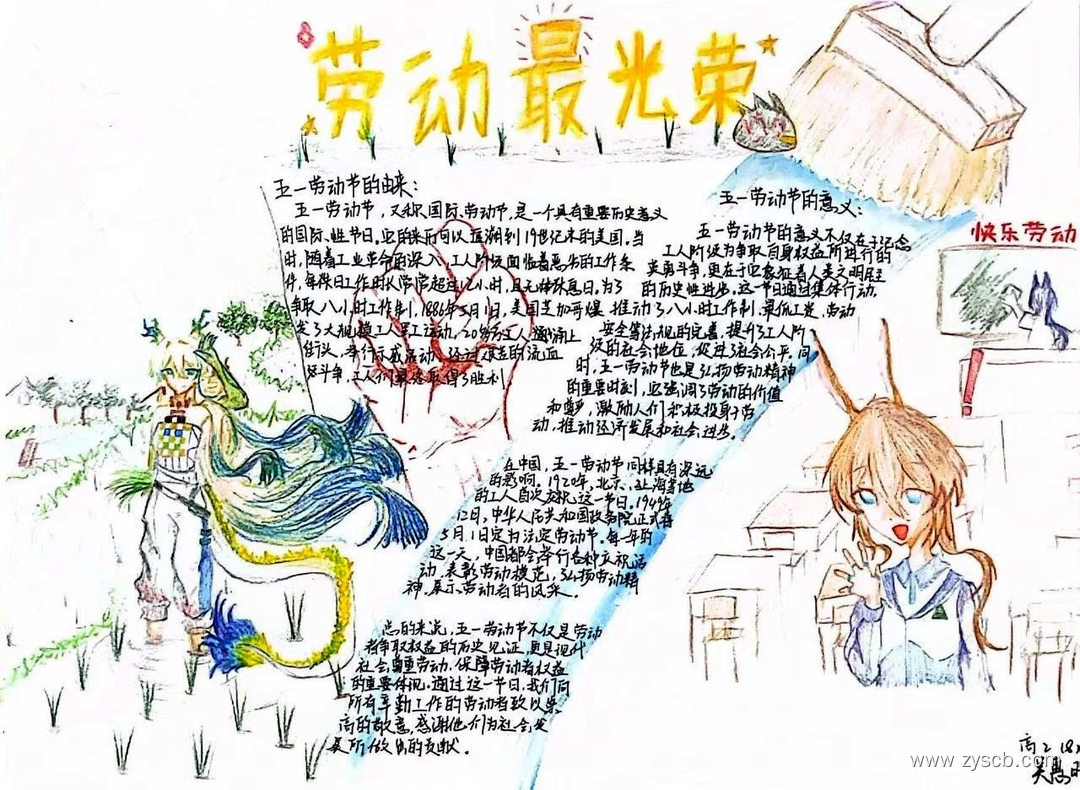 劳动最光荣
五一劳动节的由来：
五一劳动节，又称国际劳动节，是一个具有重要历史意义
的国际性节日。它的来历可以追溯到19世纪末的美国。当
时，随着工业革命的深入，工人阶级面临着恶劣的工作条
件，每个日工作时长常常超过12小时，且无休息日。为了
争取八小时工作制，1886年5月1日，美国芝加哥爆
发了大规模工人罢工运动，20多万工人涌上
街头，举行示威活动，经过艰苦的流血
斗争，工人们最终取得了胜利。
五一劳动节的意义：
五一劳动节的意义不仅在于纪念
工人阶级为争取自身权益所进行的
英勇斗争，更在于它象征着人类文明民主
的历史性进步。这一节日通过集体行动，
推动了八小时工作制、最低工资、劳动
安全等法规的完善，提升了工人阶
级的社会地位，促进了社会公平。同
时，五一劳动节也是弘扬劳动精神
的重要时刻，它强调了劳动的价值
和尊严，激励人们积极投身于劳
动，推动经济发展和社会进步。
在中国，五一劳动节同样具有深远
的影响。1920年，北京、上海等地
的工人首次庆祝这一节日，1949年
12月，中华人民共和国政务院正式将
5月1日定为法定劳动节。每年的
这一天，中国都会举行各种庆祝活
动，表彰劳动模范，弘扬劳动精
神，展示劳动者的风采。
总的来说，五一劳动节不仅是劳动
者争取权益的历史见证，更是现代
社会尊重劳动、保障劳动者权益
的重要体现。通过这一节日，我们向
所有辛勤工作的劳动者致以崇
高的敬意，感谢他们为社会发
展所做出的贡献。
快乐劳动
高2
www.zyscb.com